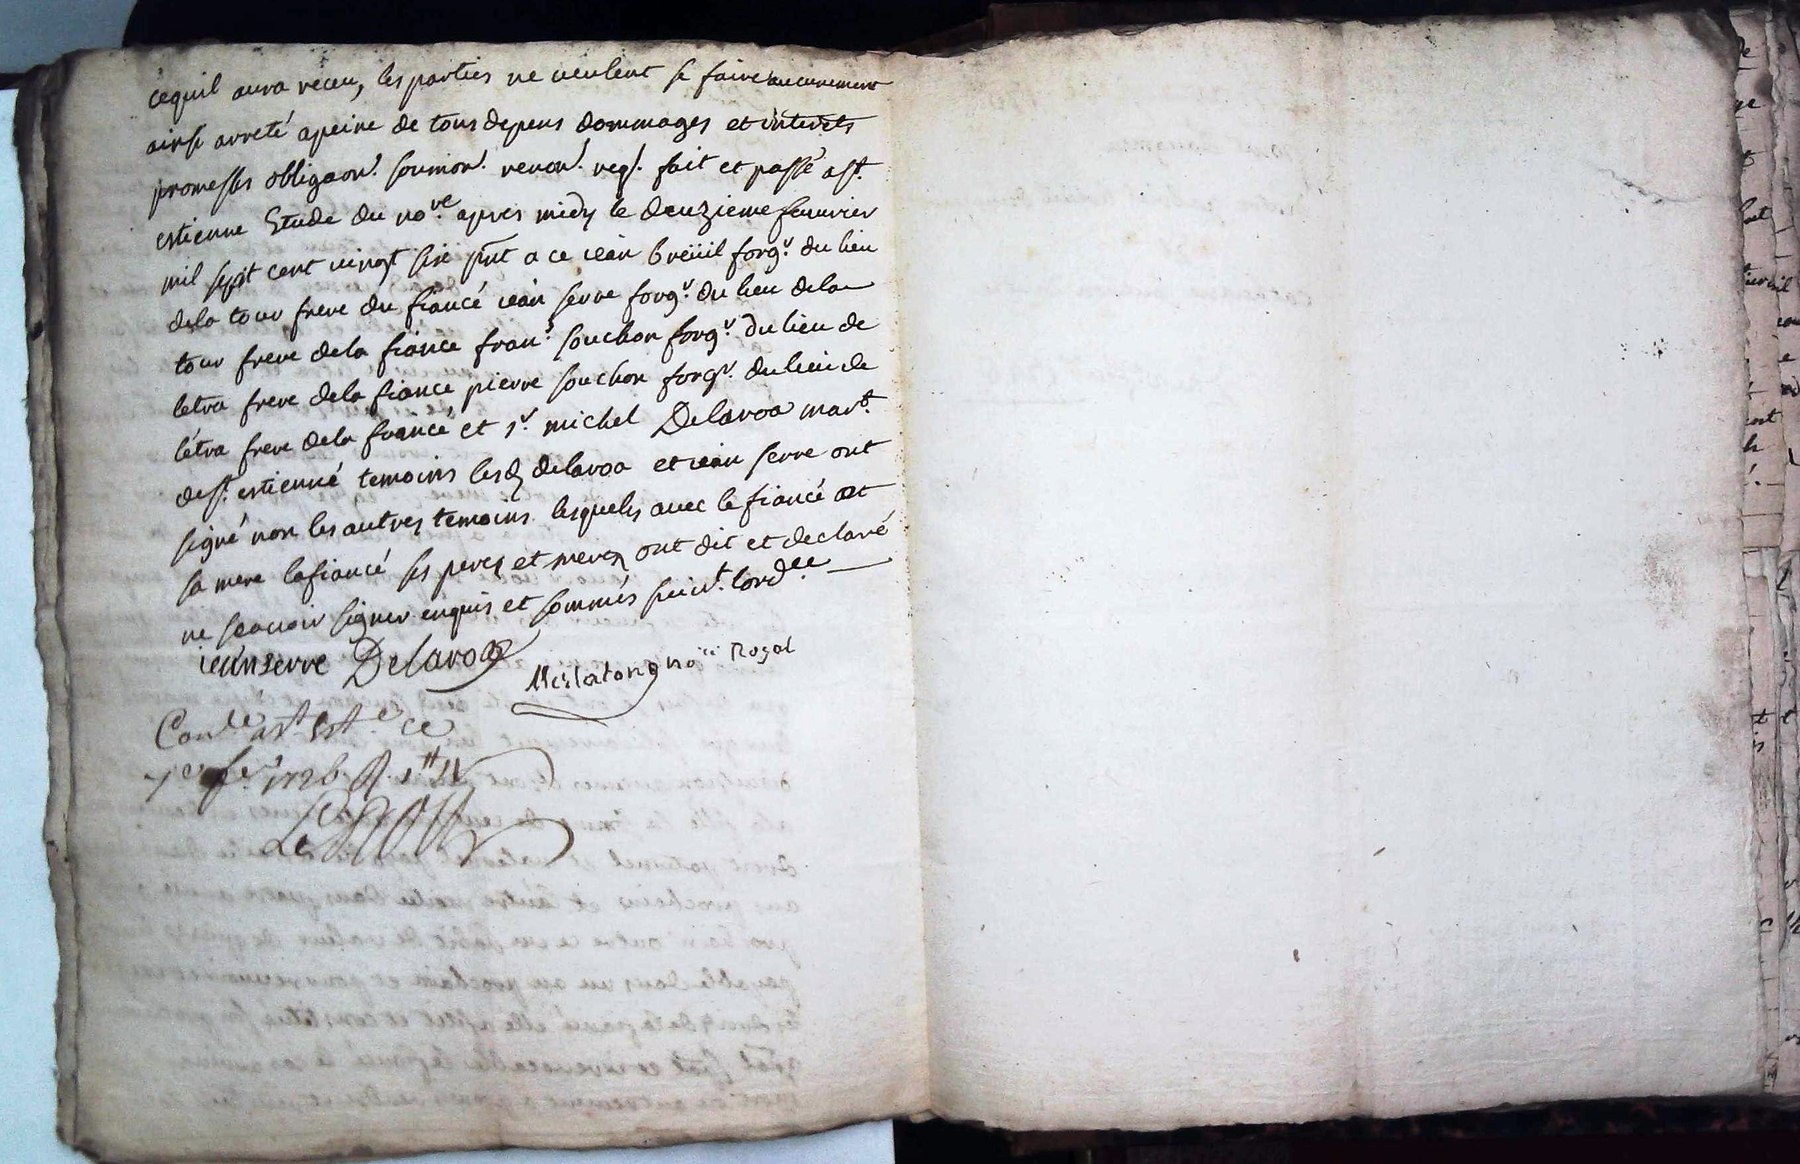 cequil aura receu, les parties ne veulent se faire aucunement
ainsi arreté apeine de tous depens dommages et interets
promesses obligaon.s soumion.s renon.s req.s fait et passé a st.
estienne Etude du no.re apres midy le deuzieme feuvrier
mil sept cent vingt six pnt a ce iean breüil forg.r du lieu
dela tour frere du fiancé iean serre forg.r du lieu dela
tour frere dela fiancé fran.s souchon forg.r du lieu de
letra frere dela fiance pierre souchon forg.r du lieu de
létra frere dela fiancé et s.r michel Delaroa mar.t
de st. estienne temoins lesd delaroa et iean serre ont
signé non les autres temoins lesquels avec le fiancé et
sa mere lafiancé ses peres et meres ont dit et declaré
ne scavoir signer enquis et sommés suiv.t lord.ce
ieanserre Delaroa
no.re Royal
Con.lé a st. est.e ce
7e fe.r 1726 R. 1tt